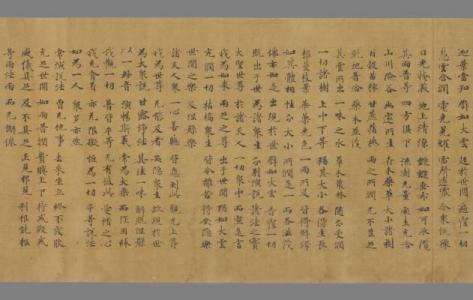 迦葉當知 譬如大雲 起於世間 遍覆一切
慧雲含潤 電光晃曜 雷聲遠震 令眾悅豫
日光掩蔽 地上清涼 靉靆垂布 如可承攬
其雨普等 四方俱下 流澍無量 率土充洽
山川險谷 幽邃所生 卉木藥草 大小諸樹
百穀苗稼 甘蔗蒲萄 雨之所潤 無不豐足
乾地普洽 藥木並茂
其雲所出 一味之水 草木叢林 隨分受潤
一切諸樹 上中下等 稱其大小 各得生長
根莖枝葉 華菓光色 一雨所及 皆得鮮澤
如其體相 性分大小 所潤是一 而各滋茂
佛亦如是 出現於世 譬如大雲 普覆一切
既出于世 為諸眾生 分別演說 諸法之實
大聖世尊 於諸天人 一切眾中 而宣是言
我為如來 兩足之尊 出于世間 猶如大雲
充潤一切 枯槁眾生 皆令離苦 得安隱樂
世間之樂 及涅槃樂
諸天人眾 一心善聽 皆應到此 覲無上尊
我為世尊 無能及者 安隱眾生 故現於世
為大眾說 甘露淨法 其法一味 解脫涅槃
以一妙音 演暢斯義 常為大乘 而作因緣
我觀一切 普皆平等 無有彼此 愛憎之心
我無貪著 亦無限礙 恒為一切 平等說法
如為一人 眾多亦然
常演說法 曾無他事 去來坐立 終不疲厭
充足世間 如雨普潤 貴賤上下 持戒毀戒
威儀具足 及不具足 正見邪見 利根鈍根
等雨法雨 而無懈倦